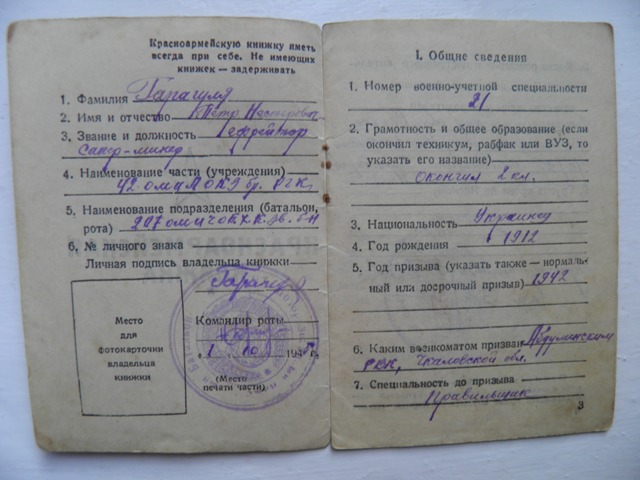 Красноармейскую книжку иметь
всегда при себе. Не имеющих
книжек — задерживать
1. Фамилия Гарагуля
2. Имя и отчество Петр Нестерович
3. Звание и должность Ефрейтор
Сапер-минер
4. Наименование части (учреждения)
42 РГК
5. Наименование подразделения (батальон,
рота) 297
6. № личного знака
Личная подпись владельца книжки
Гарагуля
Место
для
фотокарточки
владельца
книжки
Командир роты
„1" 10 1945 г.
(Место
печати части)
I. Общие сведения
1. Номер военно-учетной специальности
21
2. Грамотность и общее образование (если
окончил техникум, рабфак или ВУЗ, то
указать его название)
окончил 2 кл.
3. Национальность Украинец
4. Год рождения 1912
5. Год призыва (указать также — нормаль-
ный или досрочный призыв) 1942
6. Каким военкоматом призван Абдулинским
РВК, Чкаловской обл.
7. Специальность до призыва
Правильщик
3